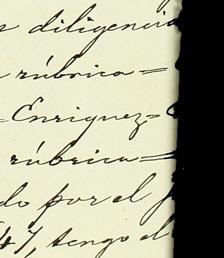 diligencia
rúbrica =
= Enriquez =
rúbrica =
do por el
47, tengo el